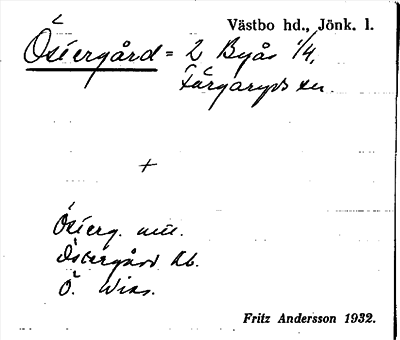 Västbo hd., Jönk. l.
Östergård = 2 Byås 1/4,
Färgaryds sn.
+
Österg. mtl.
Östergård Ab.
Ö. Wiks.
Fritz Andersson 1932.